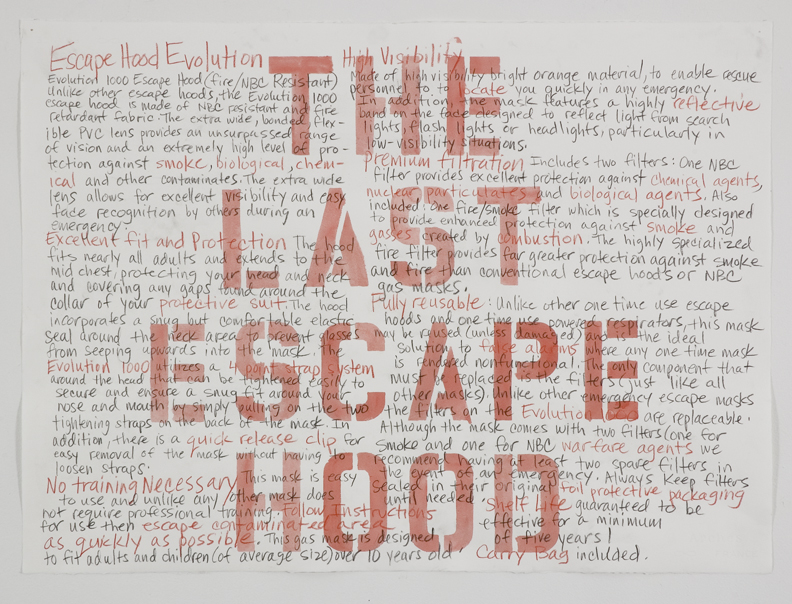 THE
LAST
ESCAPE
HOOD
Escape Hood Evolution
Evolution 1000 Escape Hood (fire/NBC Resistant)
Unlike other escape hoods, the Evolution 1000
escape hood is made of NBC resistant and fire
retardant fabric. The extra wide, bonded, flex-
ible PVC lens provides an unsurpassed range
of vision and an extremely high level of pro-
tection against smoke, biological, chem-
ical and other contaminates. The extra wide
lens allows for excellent visibility and easy
face recognition by others during an
emergency.
Excellent fit and Protection The hood
fits nearly all adults and extends to the
mid chest, protecting your head and neck
and covering any gaps found around the
collar of your protective suit. The hood
incorporates a snug but comfortable elastic
seal around the neck area to prevent glasses
from seeping upwards into the mask. The
Evolution 1000 utilizes a 4 point strap system
around the head that can be tightened easily to
secure and ensure a snug fit around your
nose and mouth by simply pulling on the two
tightening straps on the back of the mask. In
addition, there is a quick release clip for
easy removal of the mask without having to
loosen straps.
No training Necessary This mask is easy
to use and unlike any other mask does
not require professional training. Follow Instructions
for use then escape contaminated area
as quickly as possible. This gas mask is designed
to fit adults and children (of average size) over 10 years old.
High Visibility
Made of high visibility bright orange material, to enable rescue
personnel to to locate you quickly in any emergency.
In addition, the mask features a highly reflective
band on the face designed to reflect light from search
lights, flash lights or headlights, particularly in
low-visibility situations.
Premium Filtration Includes two filters: One NBC
filter provides excellent protection against chemical agents,
nuclear particulates and biological agents. Also
included one fire/smoke filter which is specially designed
to provide enhanced protection against smoke and
gasses created by combustion. The highly specialized
fire filter provides far greater protection against smoke
and than conventional escape hoods or NBC
gas masks.
Fully reusable: Unlike other one time use escape
hoods and one time use powered respirators, this mask
may be reused (unless damaged) and is the ideal
solution to false alarms where any one time mask
is rendered nonfunctional. The only component that
must be replaced is the filters (just like all
other masks). Unlike other emergency escape masks
the filters on the Evolution are replaceable.
Although the mask comes with two filters (one for
smoke and one for NBC warfare agents we
recommend having at least two spare filters in
the event of any emergency. Always keep filters
sealed in their original foil protective packaging
until needed. Shelf Life guaranteed to be
effective for a minimum
of five years!
Carry Bag included.